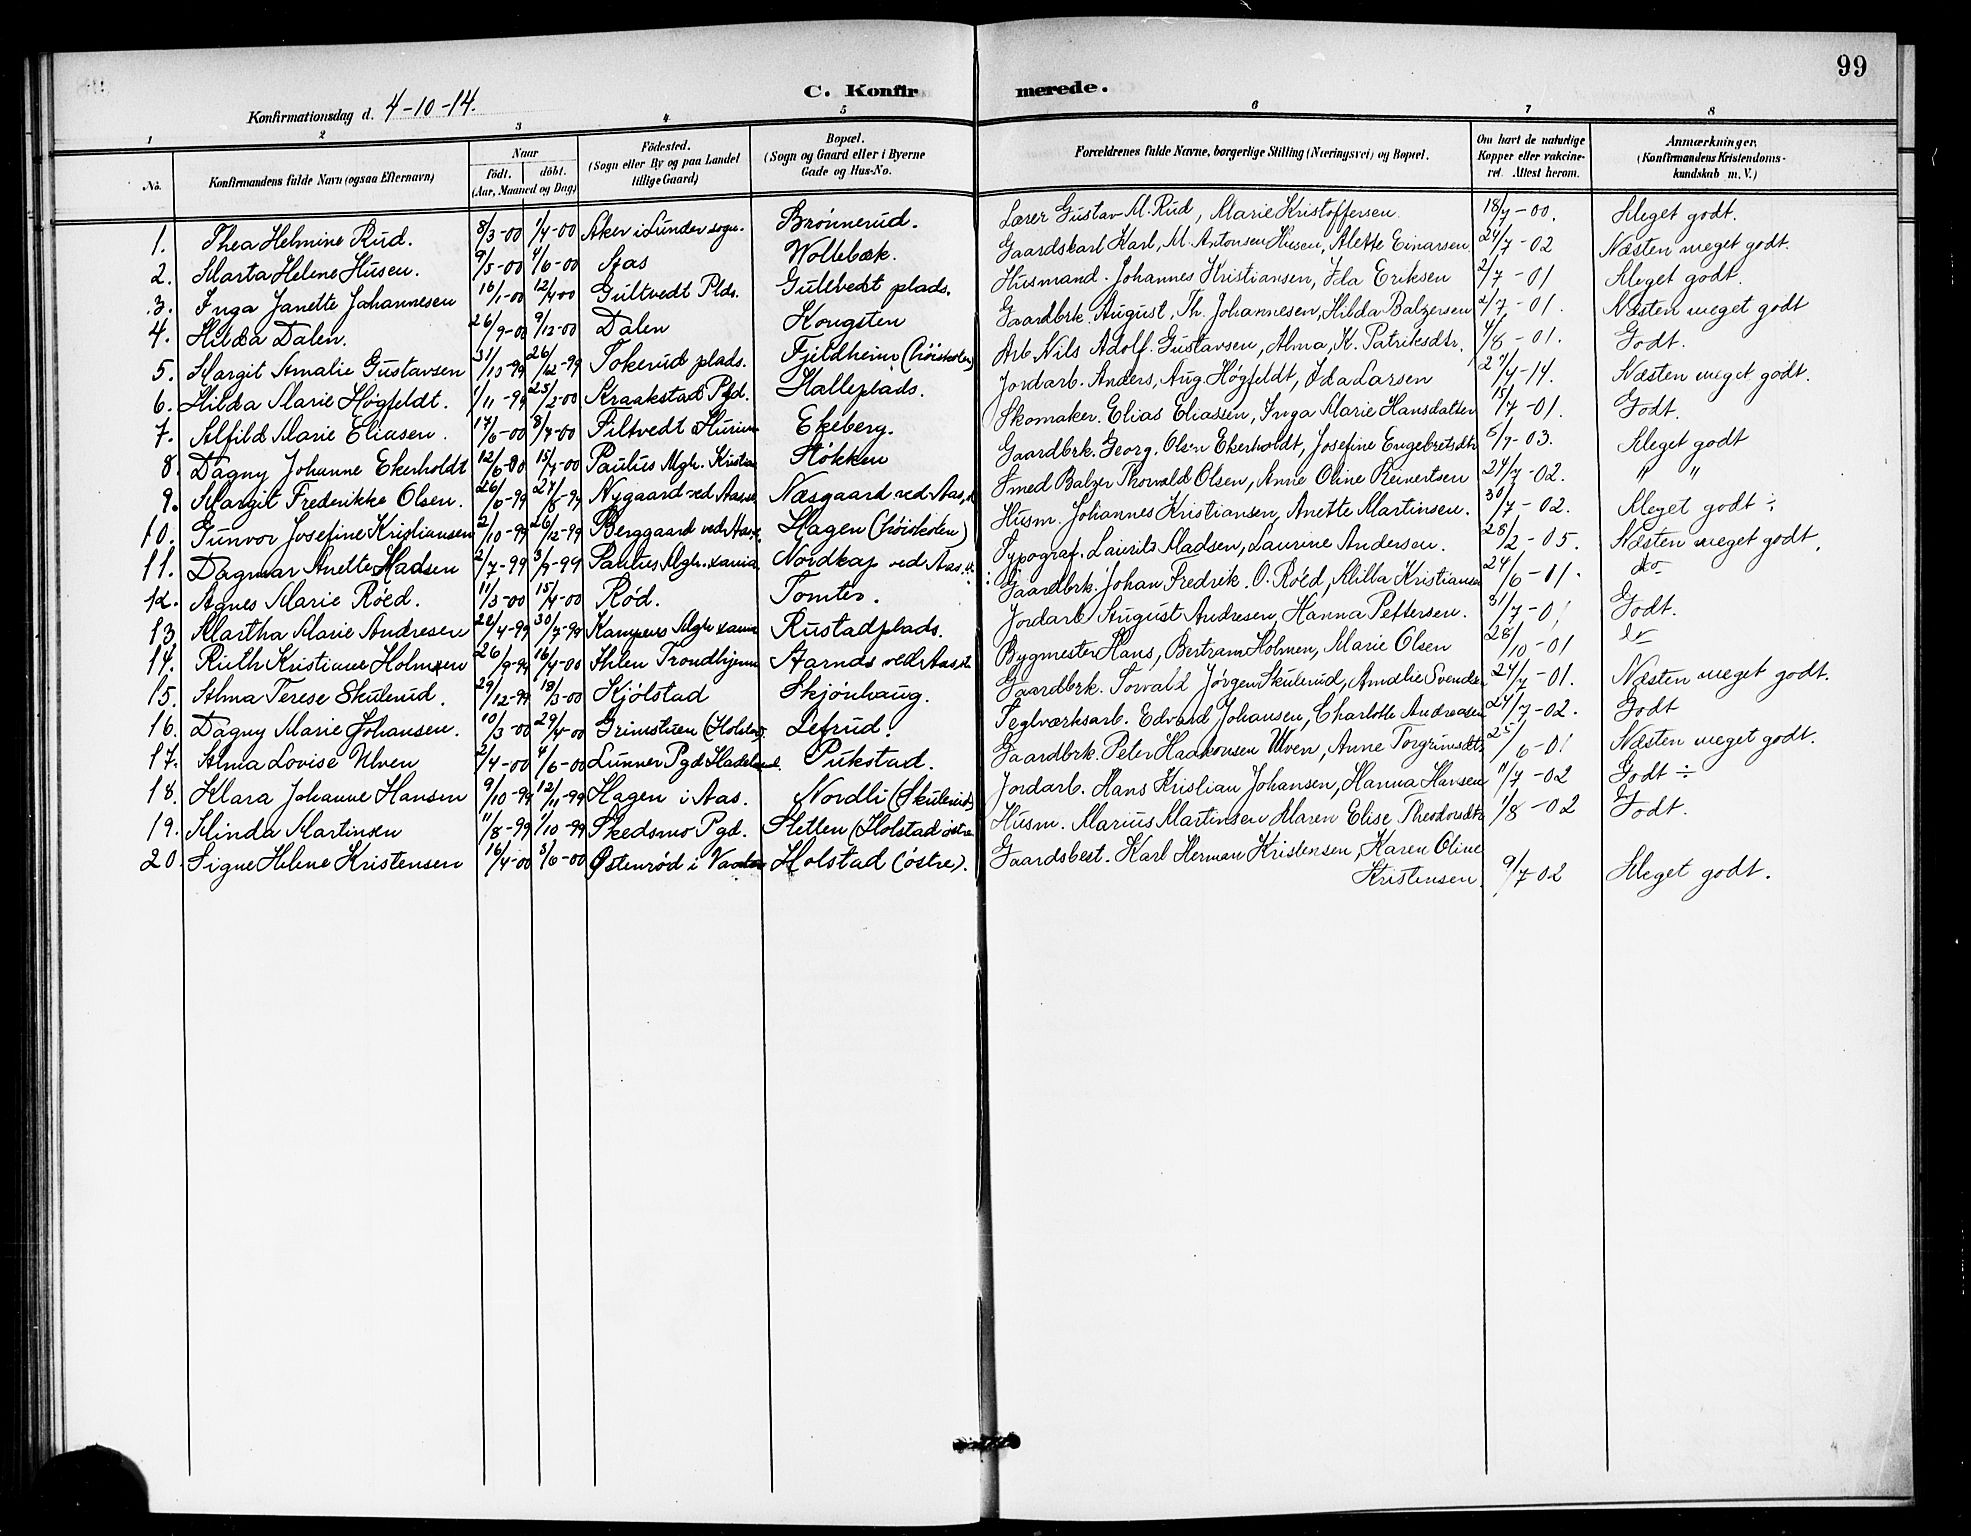 99
C. Konfirmerede.
Konfirmationsdag d. 4-10-14.
1 2 3 4 5 6 7 8
No. Konfirmandens fulde Navn (ogsaa Efternavn) Naar födt. döbt. (Aar, Maaned og Dag) Födested. (Sogn eller By og paa Landet tillige Gaard) Bopæl. (Sogn og Gaard eller i Byerne Gade og Hus-No. Forældrenes fulde Navne, borgerlige Stilling (Næringsvei) og Bopæl. Om havt de naturlige Kopper eller vakcineret. Attest herom. Anmærkninger. (Konfirmandens Kristendomskundskab m. V.)
1. Thea Helmine Rud. 8/3-00 1/4-00 Aker i Sunder sogn. Brönnerud. Lærer Gustav M. Rud, Marie Kristoffersen 18/7-00. Meget godt.
2. Marta Helene Husen. 9/5-00 1/6-00 Aas Wollebæk. Gaardskarl Karl, M. Antonsen Husen, Alette Einarsen 24/7-02 Næsten meget godt.
3. Inga Janette Johannesen 16/1-00 12/4-00 Gultvedt Plds. Gultvedt plads. Husmand. Johannes Kristiansen, Ida Eriksen 2/7-01 Meget godt.
4. Hilda Dalen. 26/9-00 9/12-00 Dalen Kongsten Gaardbrk. August, Th. Johannesen, Hilda Balzersen 2/7-01. Næsten meget godt
5. Margit Amalie Gustavsen 31/10-99 26/12-99 Tokerud plads. Fjeldheim (höiskolen) Arb Nils Adolf. Gustavsen, Alma, K. Patriksdtr. 4/8-01. Godt.
6. Hilda Marie Högfeldt. 1/11-99 25/2-00 Kraakstad Pgd. Halleplads. Jordarb. Anders, Aug. Högfeldt, Ida Larsen 27/4-14. Næsten meget godt.
7. Alfild Marie Eliasen. 17/6-00 8/7-00 Filtvedt i Hurum Ekeberg. Skomaker. Elias Eliassen, Inga Marie Hansdatter 15/7-01. Godt.
8. Dagny Johanne Ekerholdt 12/6-00 15/7-00 Paulus Mgh. Kristia Stökken Gaardbrk. Georg. Olsen Ekerholdt, Josefine Engebretsdtr 5/9-03. Meget godt
9. Margit Frederikke Olsen. 26/6-99 27/8-99 Nygaard ved Aas st Næsgaard ved Aas, st Smed Balzer Thorvald Olsen, Anne Oline Reinertsen 24/7-02. " "
10. Gunvor Josefine Kristiansen 2/10-99 26/12-99 Berggaard ved Aas st. Hagen (höiskolen) Husm. Johannes Kristiansen, Anette Martinsen. 30/7-02. Meget godt ÷
11. Dagmar Anette Madsen 2/7-99 3/9-99 Paulus Mgh. xania Nordkap ved Aas st. Typograf. Laurits Madsen, Laurine Andersen. 28/2-05. Næsten meget godt.
12. Agnes Marie Röed. 11/3-00 15/4-00 Röd. Tomter. Gaardbrk. Johan Fredrik. O. Röed, Milla Kristiansen 24/6-01. do
13 Martha Marie Andresen 22/4-99 30/7-99 Kampens Mgh xania Rustadplads. Jordarb. August Andresen, Hanna Pettersen. 31/7-01 Godt.
14. Ruth Kristiane Holmsen 26/9-99 16/4-00 Ihlen Trondhjem Aarnds ved Aas, st Bygmester Hans, Bertram Holmen, Marie Olsen 28/10-01
15. Alma Terese Skulerud. 29/12-99 18/3-00 Kjölstad Skjönhaug. Gaardbrk. Torvald Jörgen Skulerud, Amalie Svendsen 24/7-01. Næsten meget godt.
16. Dagny Marie Johansen. 10/3-00 29/4-00 Grimstuen (Holstad). Lefrud. Teglværksarb. Edvard Johansen, Charlotte Andreasen 24/7-02. Godt
17. Alma Lovise Ulven 2/4-00 4/6-00 Lunner Pgd Hadeland. Pukstad. Gaardbrk. Peter Haakonsen Ulven, Anne Torgrimsdtr 25/6-01 Næsten meget godt.
18. Klara Johanne Hansen 9/10-99 12/11-99 Hagen i Aas. Nordli (Skulerud) Jordarb. Hans Kristian Johansen, Hanna Hansen 11/7-02 Godt ÷
19. Minda Martinsen 11/8-99 1/10-99 Skedsmo Pgd. Sletten (Holstad östre Husm. Marius Martinsen Maren Elise Theodorsdtr 1/8-02 Godt.
20. Signe Helene Kristensen 16/4-00 5/6-00 Östenröd i Vanlen Holstad (östre). Gaardsbest. Karl Herman Kristensen, Karen Oline
Kristensen. 9/7-02 Meget godt.